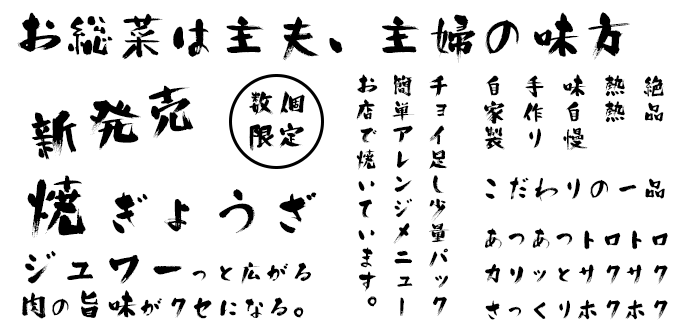 お総菜は主夫、主婦の味方
新発売
数個
限定
焼ぎょうざ
ジュワーっと広がる
肉の旨味がクセになる。
チョイ足し少量パック
簡単アレンジメニュー
お店で焼いています。
絶品
熱熱
味自慢
手作り
自家製
こだわりの一品
あつあつトロトロ
カリッとサクサク
さっくりホクホク